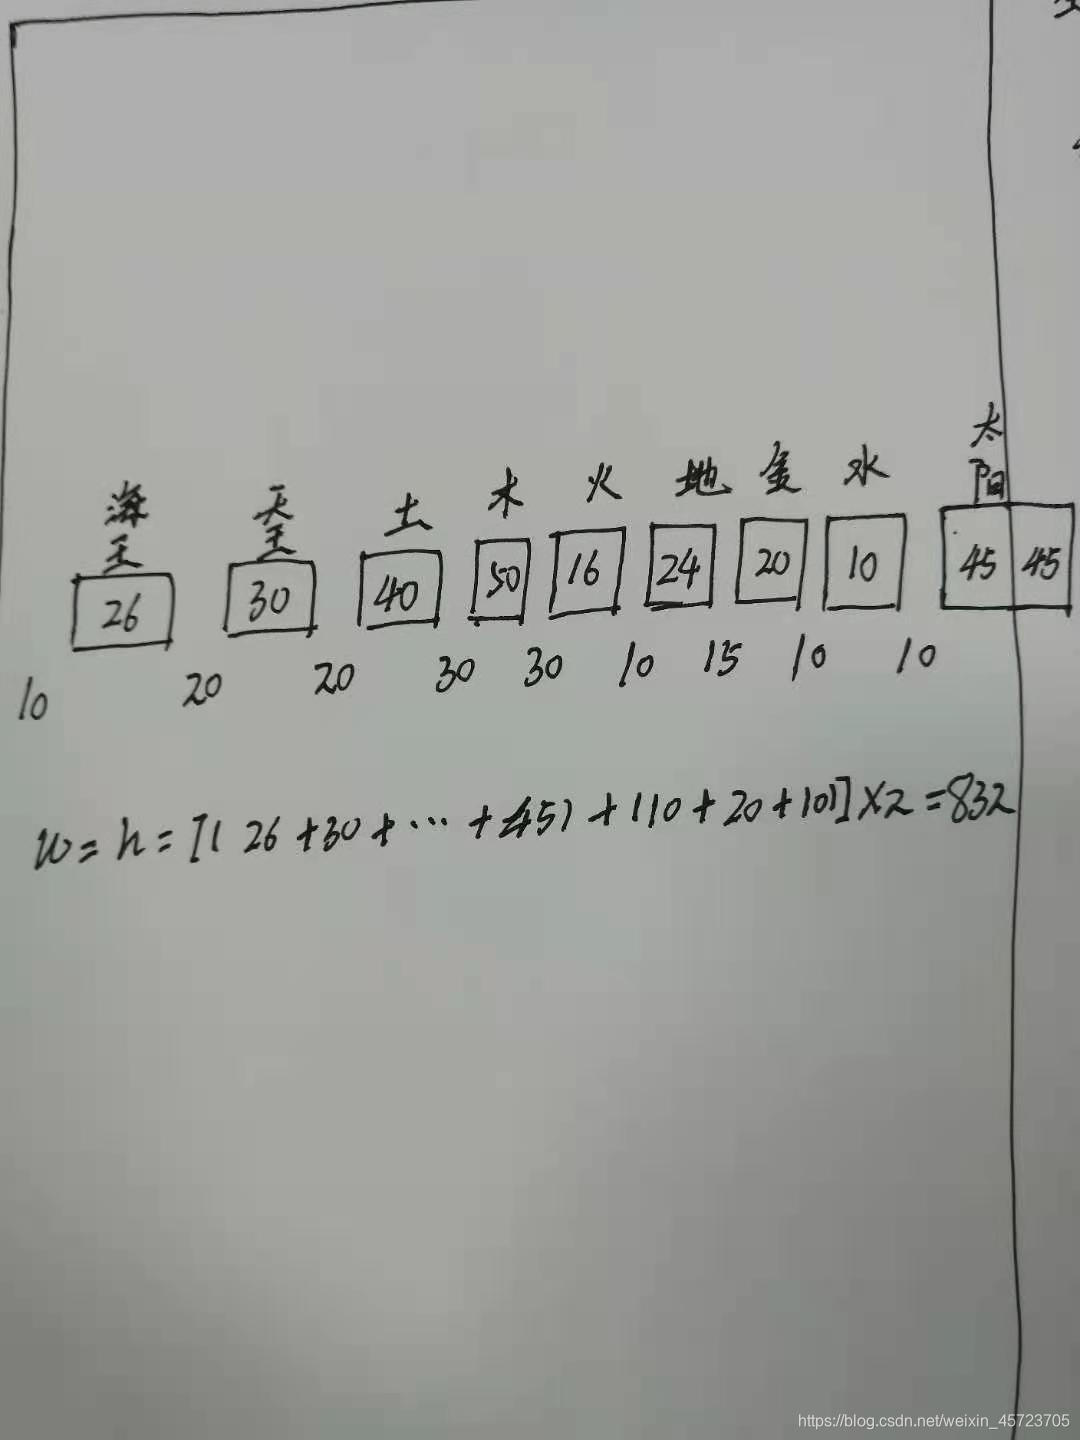 海王 天王 土 木 火 地 金 水 太阳
26 30 40 50 16 24 20 10 45 45
10 20 20 30 30 10 15 10 10
w = h = [( 26 +30 + ··· + 45) + (10 + 20 + 10)] ×2 = 832
https://blog.csdn.net/weixin_45723705